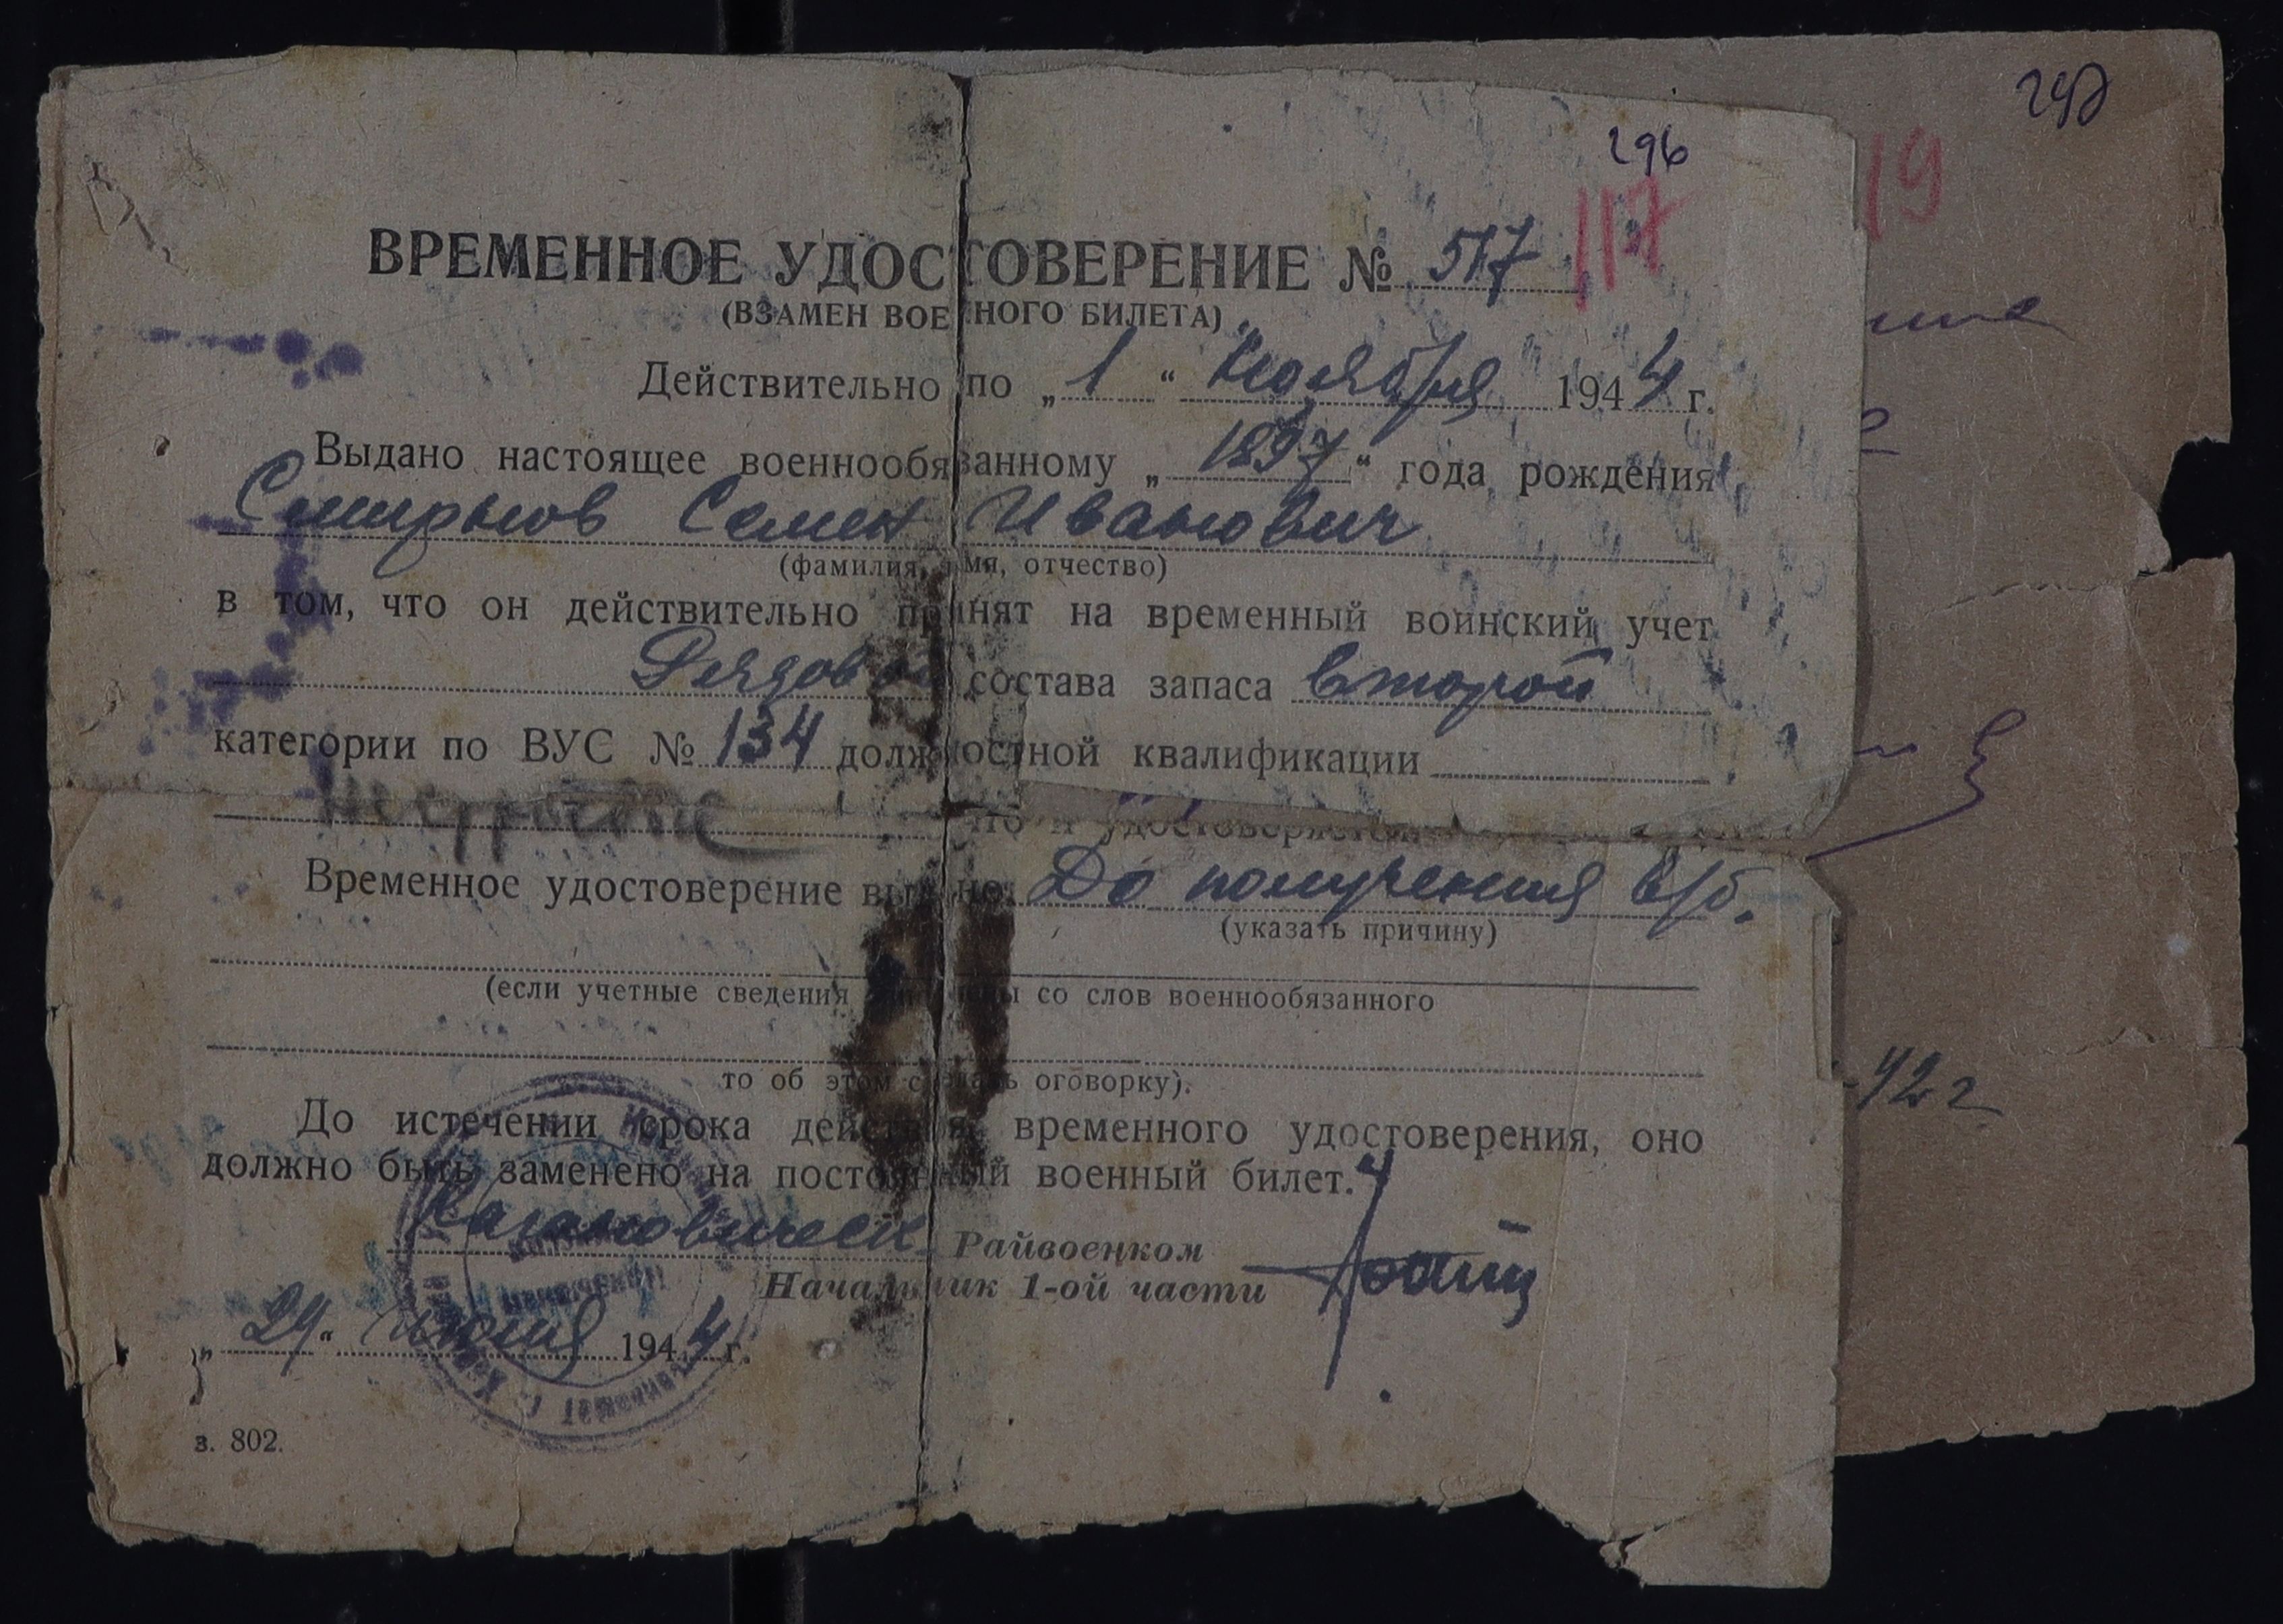 296
117
19
ВРЕМЕННОЕ УДОСТОВЕРЕНИЕ № 517
(ВЗАМЕН ВОЕННОГО БИЛЕТА)
Действительно по „1“ Ноября 1944 г.
Выдано настоящее военнообязанному „1897“ года рождения
Смирнов Семен Иванович
(фамилия, имя, отчество)
в том, что он действительно принят на временный воинский учет
Рядовой состава запаса второй
категории по ВУС № 134 должностной квалификации
что и удостоверяется.
Временное удостоверение выдано: До получения в/б.
(указать причину)
(если учетные сведения записаны со слов военнообязанного
то об этом сделать оговорку).
До истечении срока действия временного удостоверения, оно
должно быть заменено на постоянный военный билет.
Кагановическ Райвоенком
Начальник 1-ой части
„29“ июня 1944 г.
з. 802.
42 г